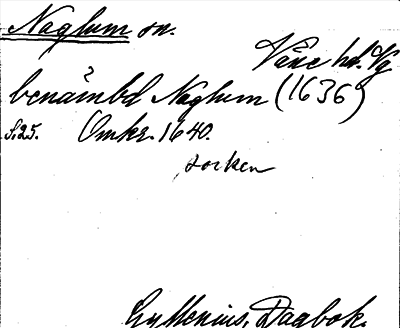 Naglum sn.
Väne hd. Vg
benåmbd Naglum (1636)
S.25. Omkr. 1640.
socken
Gyllenius, Dagbok.